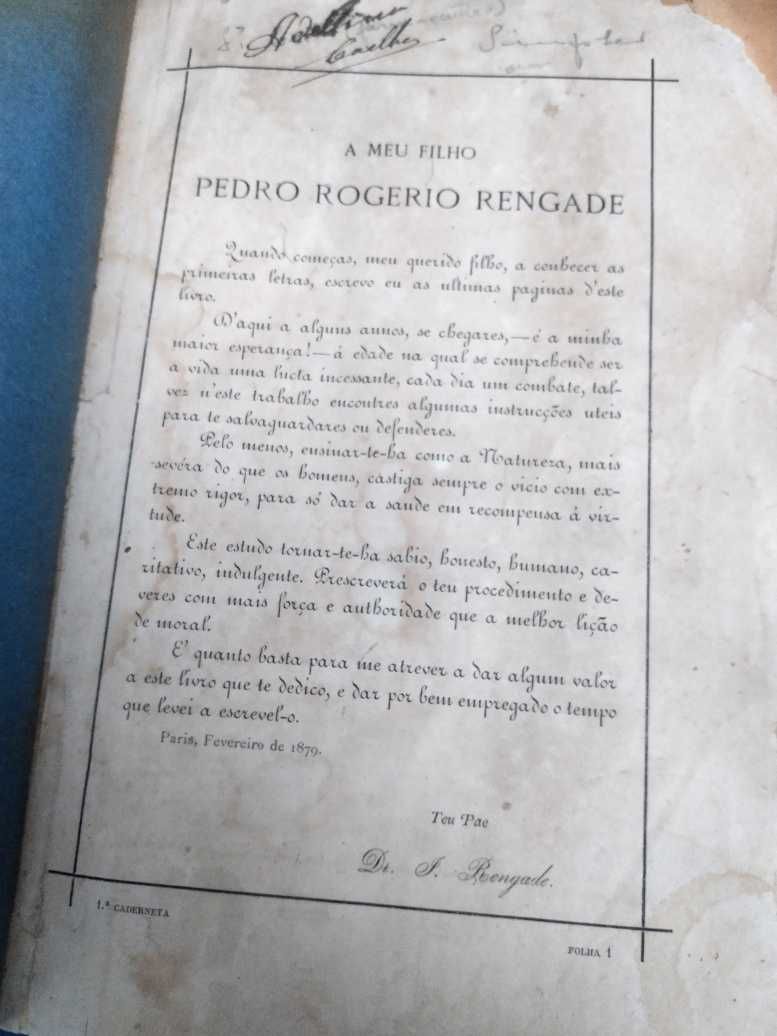 Coelho
A MEU FILHO
PEDRO ROGERIO RENGADE
Quando começas, meu querido filho, a conhecer as
primeiras letras, escrevo eu as ultimas paginas d'este
livro.
D'aqui a alguns annos, se chegares,—é a minha
maior esperança!—á edade na qual se comprehende ser
a vida uma lucta incessante, cada dia um combate, tal-
vez n'este trabalho encontres algumas instrucções uteis
para te salvaguardares ou defenderes.
Pelo menos, ensinar-te-ha como a Natureza, mais
severa do que os homens, castiga sempre o vicio com ex-
tremo rigor, para só dar a saude em recompensa á vir-
tude.
Este estudo tornar-te-ha sabio, honesto, humano, ca-
ritativo, indulgente. Prescreverá o teu procedimento e de-
veres com mais força e authoridade que a melhor lição
de moral.
E' quanto basta para me atrever a dar algum valor
a este livro que te dedico, e dar por bem empregado o tempo
que levei a escrevel-o.
Paris, Fevereiro de 1879.
Teu Pae
Dr. J. Rengade.
1.ª CADERNETA
FOLHA 1